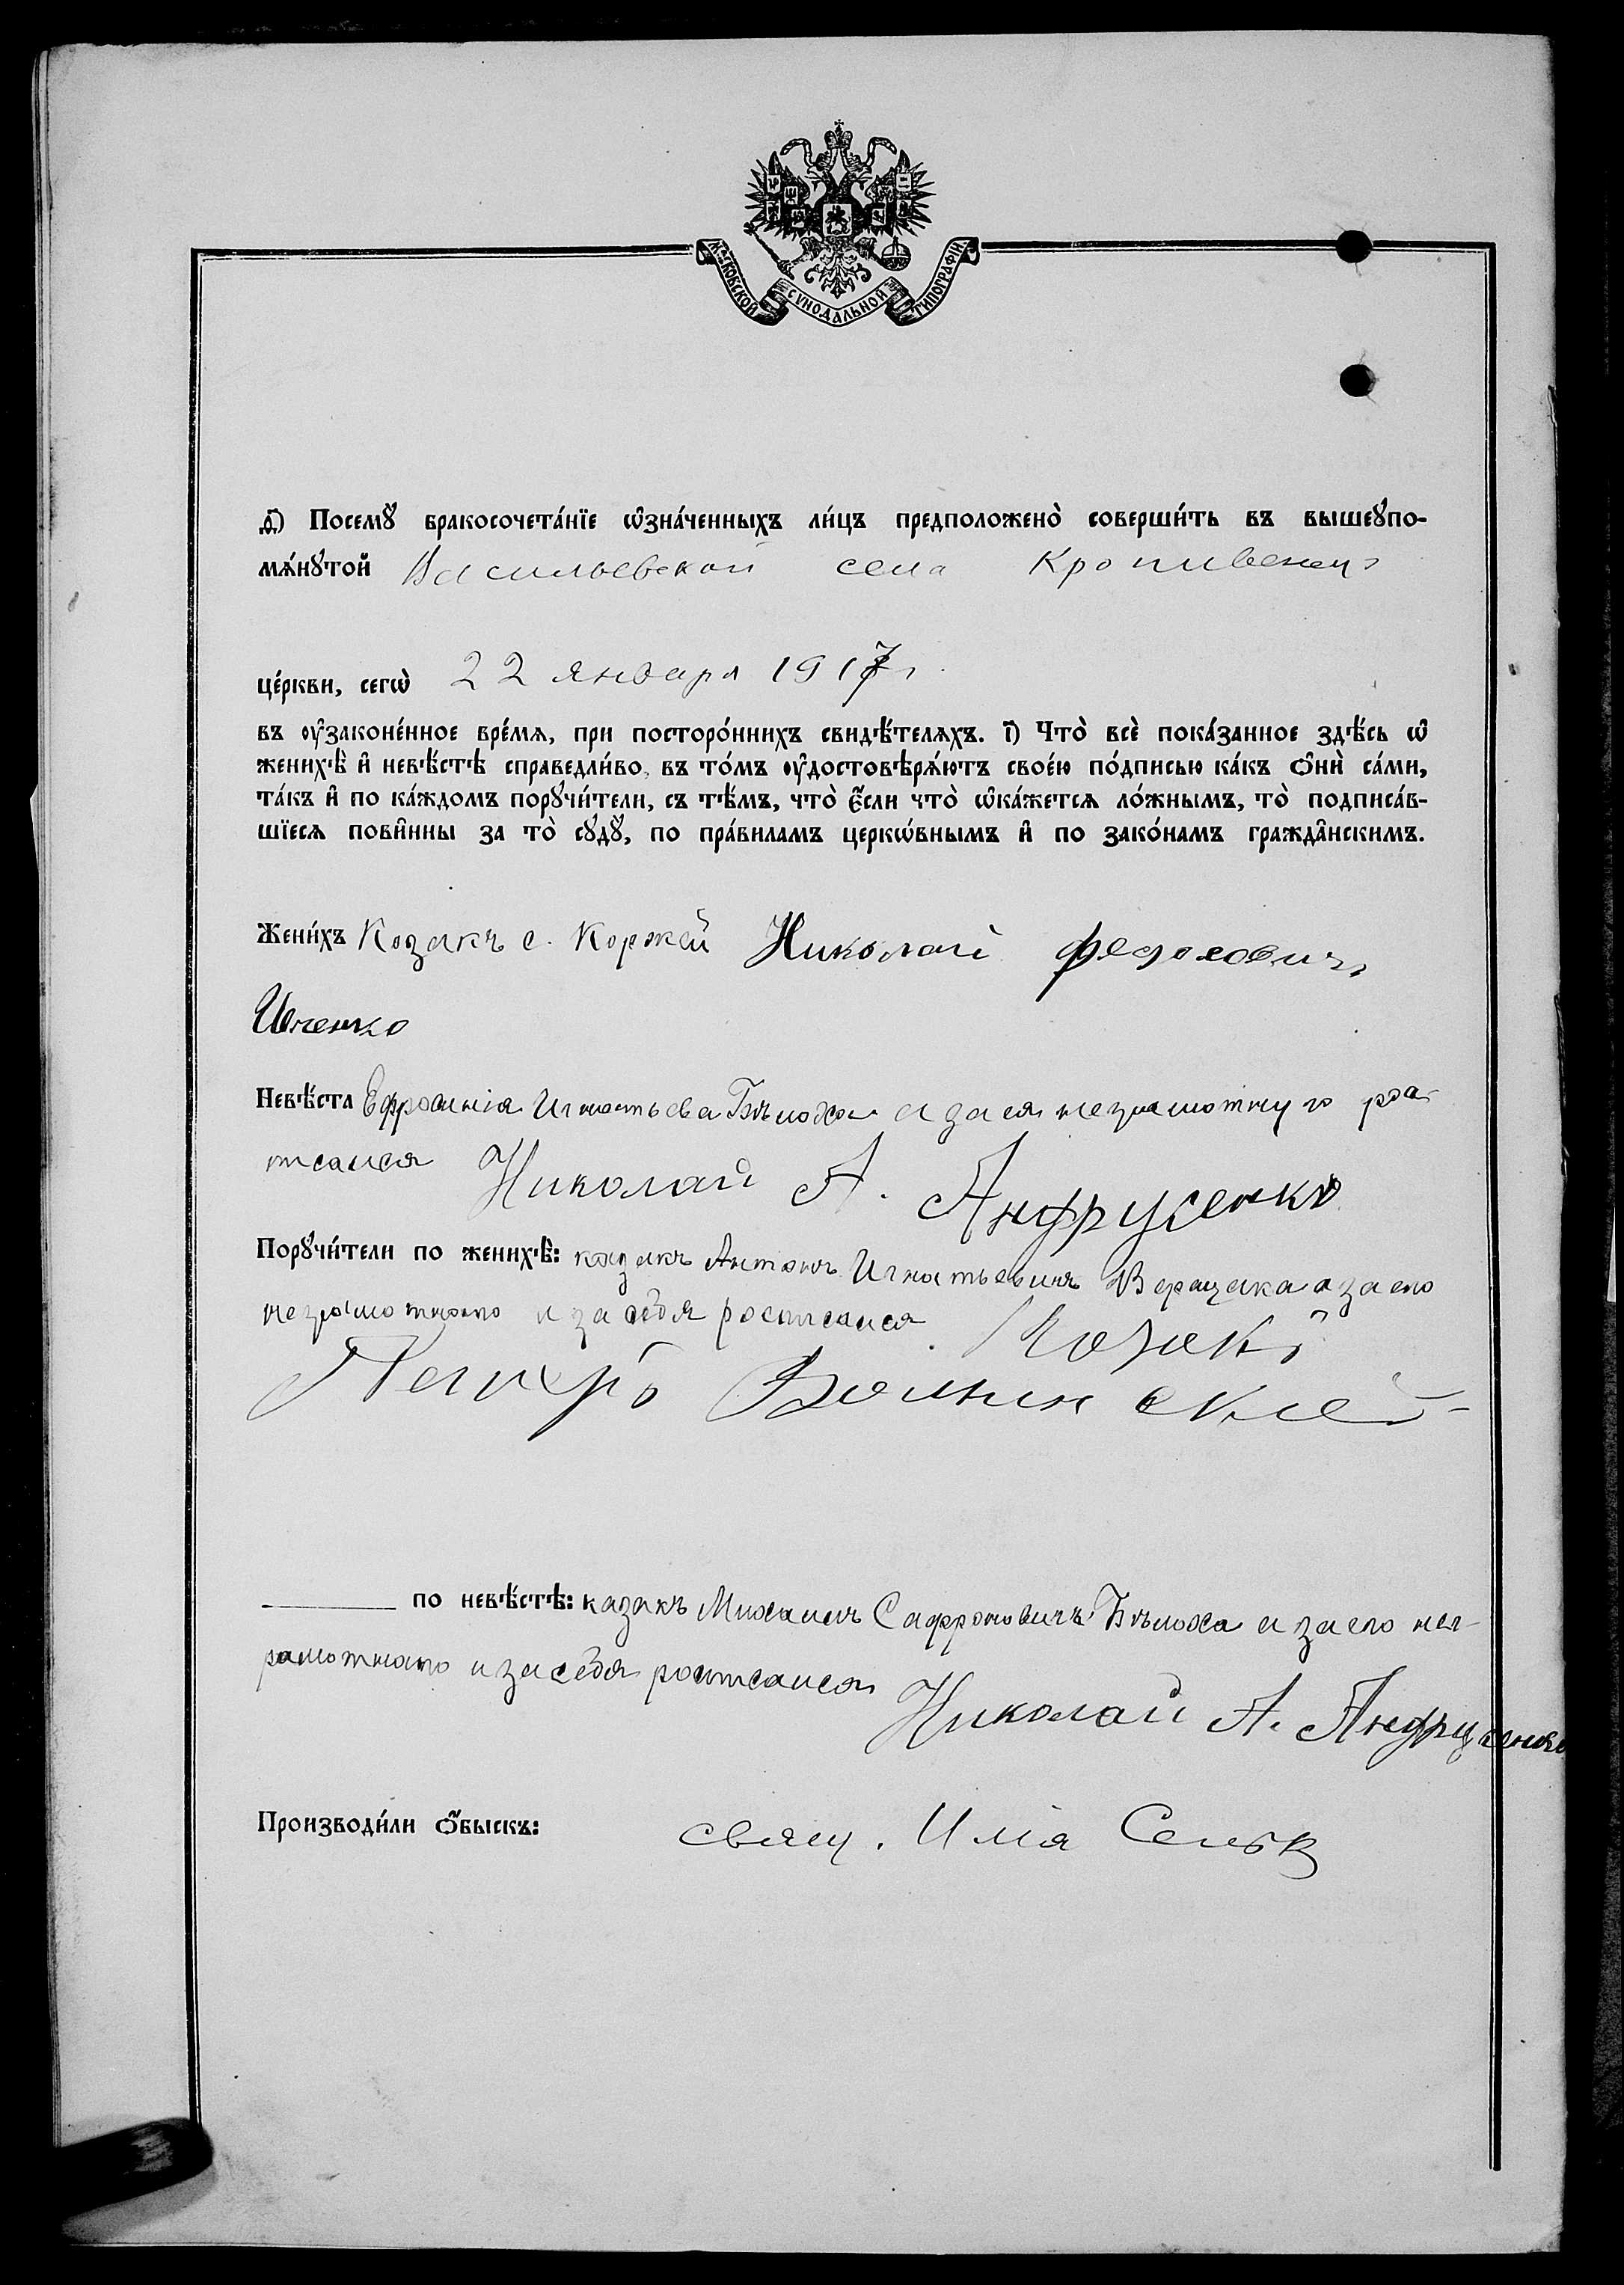 МОСКОВСКОЙ СУНОДАЛЬНОЙ ТИПОГРАФІИ
Ѳ҃) Посемꙋ̀ бракосочета́нїе ѡ҆зна́ченныхъ ли́цъ предположено̀ соверши́ть въ вышеꙋпо-
мѧ́нꙋтой Васильевской села Кропивенец
це́ркви, сегѡ̀ 22 января 1917 г.
въ оу҆законе́нное вре́мѧ, при посторо́ннихъ свидѣ́телѧхъ. І҃) Что̀ всѐ пока́занное здѣ́сь ѡ҆
женихѣ̀ и҆ невѣ́стѣ справедли́во, въ то́мъ оу҆достовѣрѧ́ютъ свое́ю по́дписью ка́къ ѻ҆нѝ са́ми,
та́къ и҆ по ка́ждомъ порꙋчи́тели, съ тѣ́мъ, что̀ є҆́сли что̀ ѡ҆ка́жетсѧ ло́жнымъ, то̀ подписа́в-
шїесѧ пови̑нны за то̀ сꙋдꙋ̀, по пра́виламъ церкѡ́внымъ и҆ по зако́намъ гражда̑нскимъ.
Жени́хъ Козакъ с. Коржей Николай Федосович
Ивченко
Невѣ́ста Ефросинія Игнатьева Бѣлоха а за ея неграмотную рос-
писался Николай А. Андрусенко
Порꙋчи́тели по женихѣ̀: козакъ Антонъ Игнатьевичъ Верещака а за его
неграмотного и за себя росписался Козакъ
Петръ Волинский
по невѣ́стѣ: казакъ Михаилъ Сафроновичъ Бѣлоха а за его нег-
рамотного и за себя росписался Николай А. Андрусенко
Производи́ли ѻ҆́быскъ: свящ. Илія